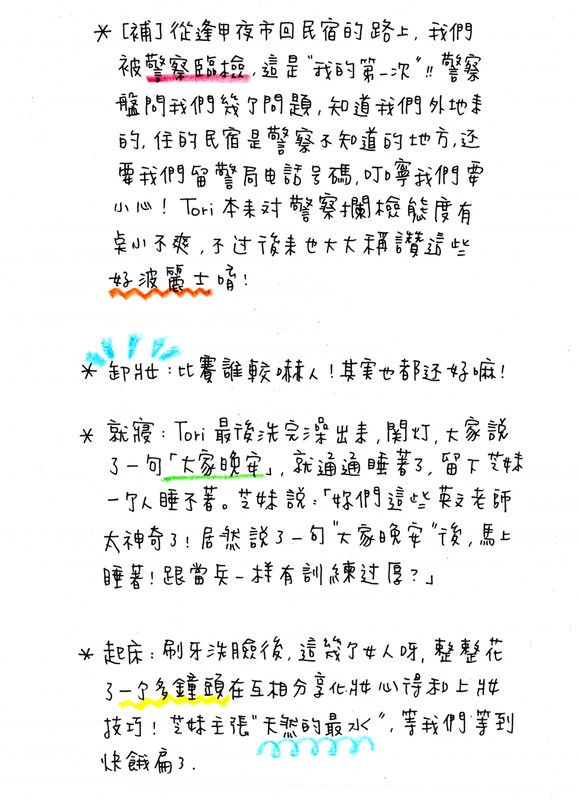 * [補] 從逢甲夜市回民宿的路上, 我們
被警察臨檢, 這是"我的第一次"!! 警察
盤問我們幾个問題, 知道我們外地來
的, 住的民宿是警察不知道的地方, 还
要我們留警局电話号碼, 叮嚀我們要
小心! Tori 本来对警察攔檢態度有
点小不爽, 不过後来也大大稱讚這些
好波麗士唷!
* 卸妝: 比賽誰較嚇人! 其实也都还好嘛!
* 就寢: Tori 最後洗完澡出来, 関灯, 大家說
了一句「大家晚安」, 就通通睡著了, 留下芝妹
一个人睡不著。芝妹說:「妳們這些英文老師
太神奇了! 居然說了一句"大家晚安"後, 馬上
睡著! 跟當兵一样有訓練过厚?」
* 起床: 刷牙洗臉後, 這幾个女人呀, 整整花
了一个多鐘頭在互相分享化妝心得和上妝
技巧! 芝妹主張"天然的最水", 等我們等到
快餓扁了.